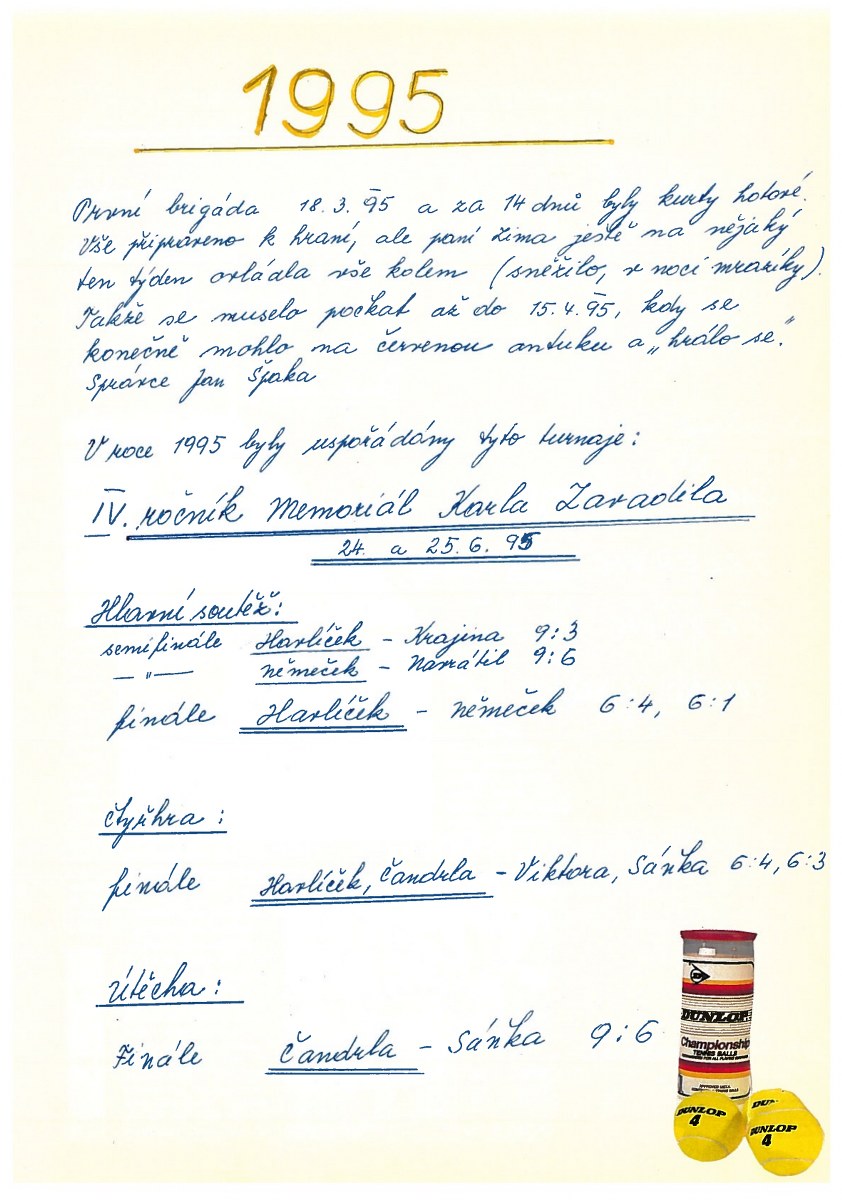 1995
První brigáda 18.3.95 a za 14 dnů byly kurty hotové.
Vše připraveno k hraní, ale paní zima ještě na nějáký
ten týden ovládla vše kolem (sněžilo, v noci mrazíky).
Takže se muselo počkat až do 15.4.95, kdy se
konečně mohlo na červenou antuku a „hrálo se."
Správce Jan Špaka
V roce 1995 byly uspořádány tyto turnaje:
IV. ročník Memoriál Karla Zavadila
24. a 25.6.95
Hlavní soutěž:
semifinále Havlíček - Krajina 9:3
— " — Němeček - Navrátil 9:6
finále Havlíček - Němeček 6:4, 6:1
Čtyřhra:
finále Havlíček, Čandrla - Viktora, Sáňka 6:4, 6:3
Útěcha:
Finále Čandrla - Sáňka 9:6
DUNLOP
Championship
TENNIS BALLS
DUNLOP
4
DU
DUNLOP
4